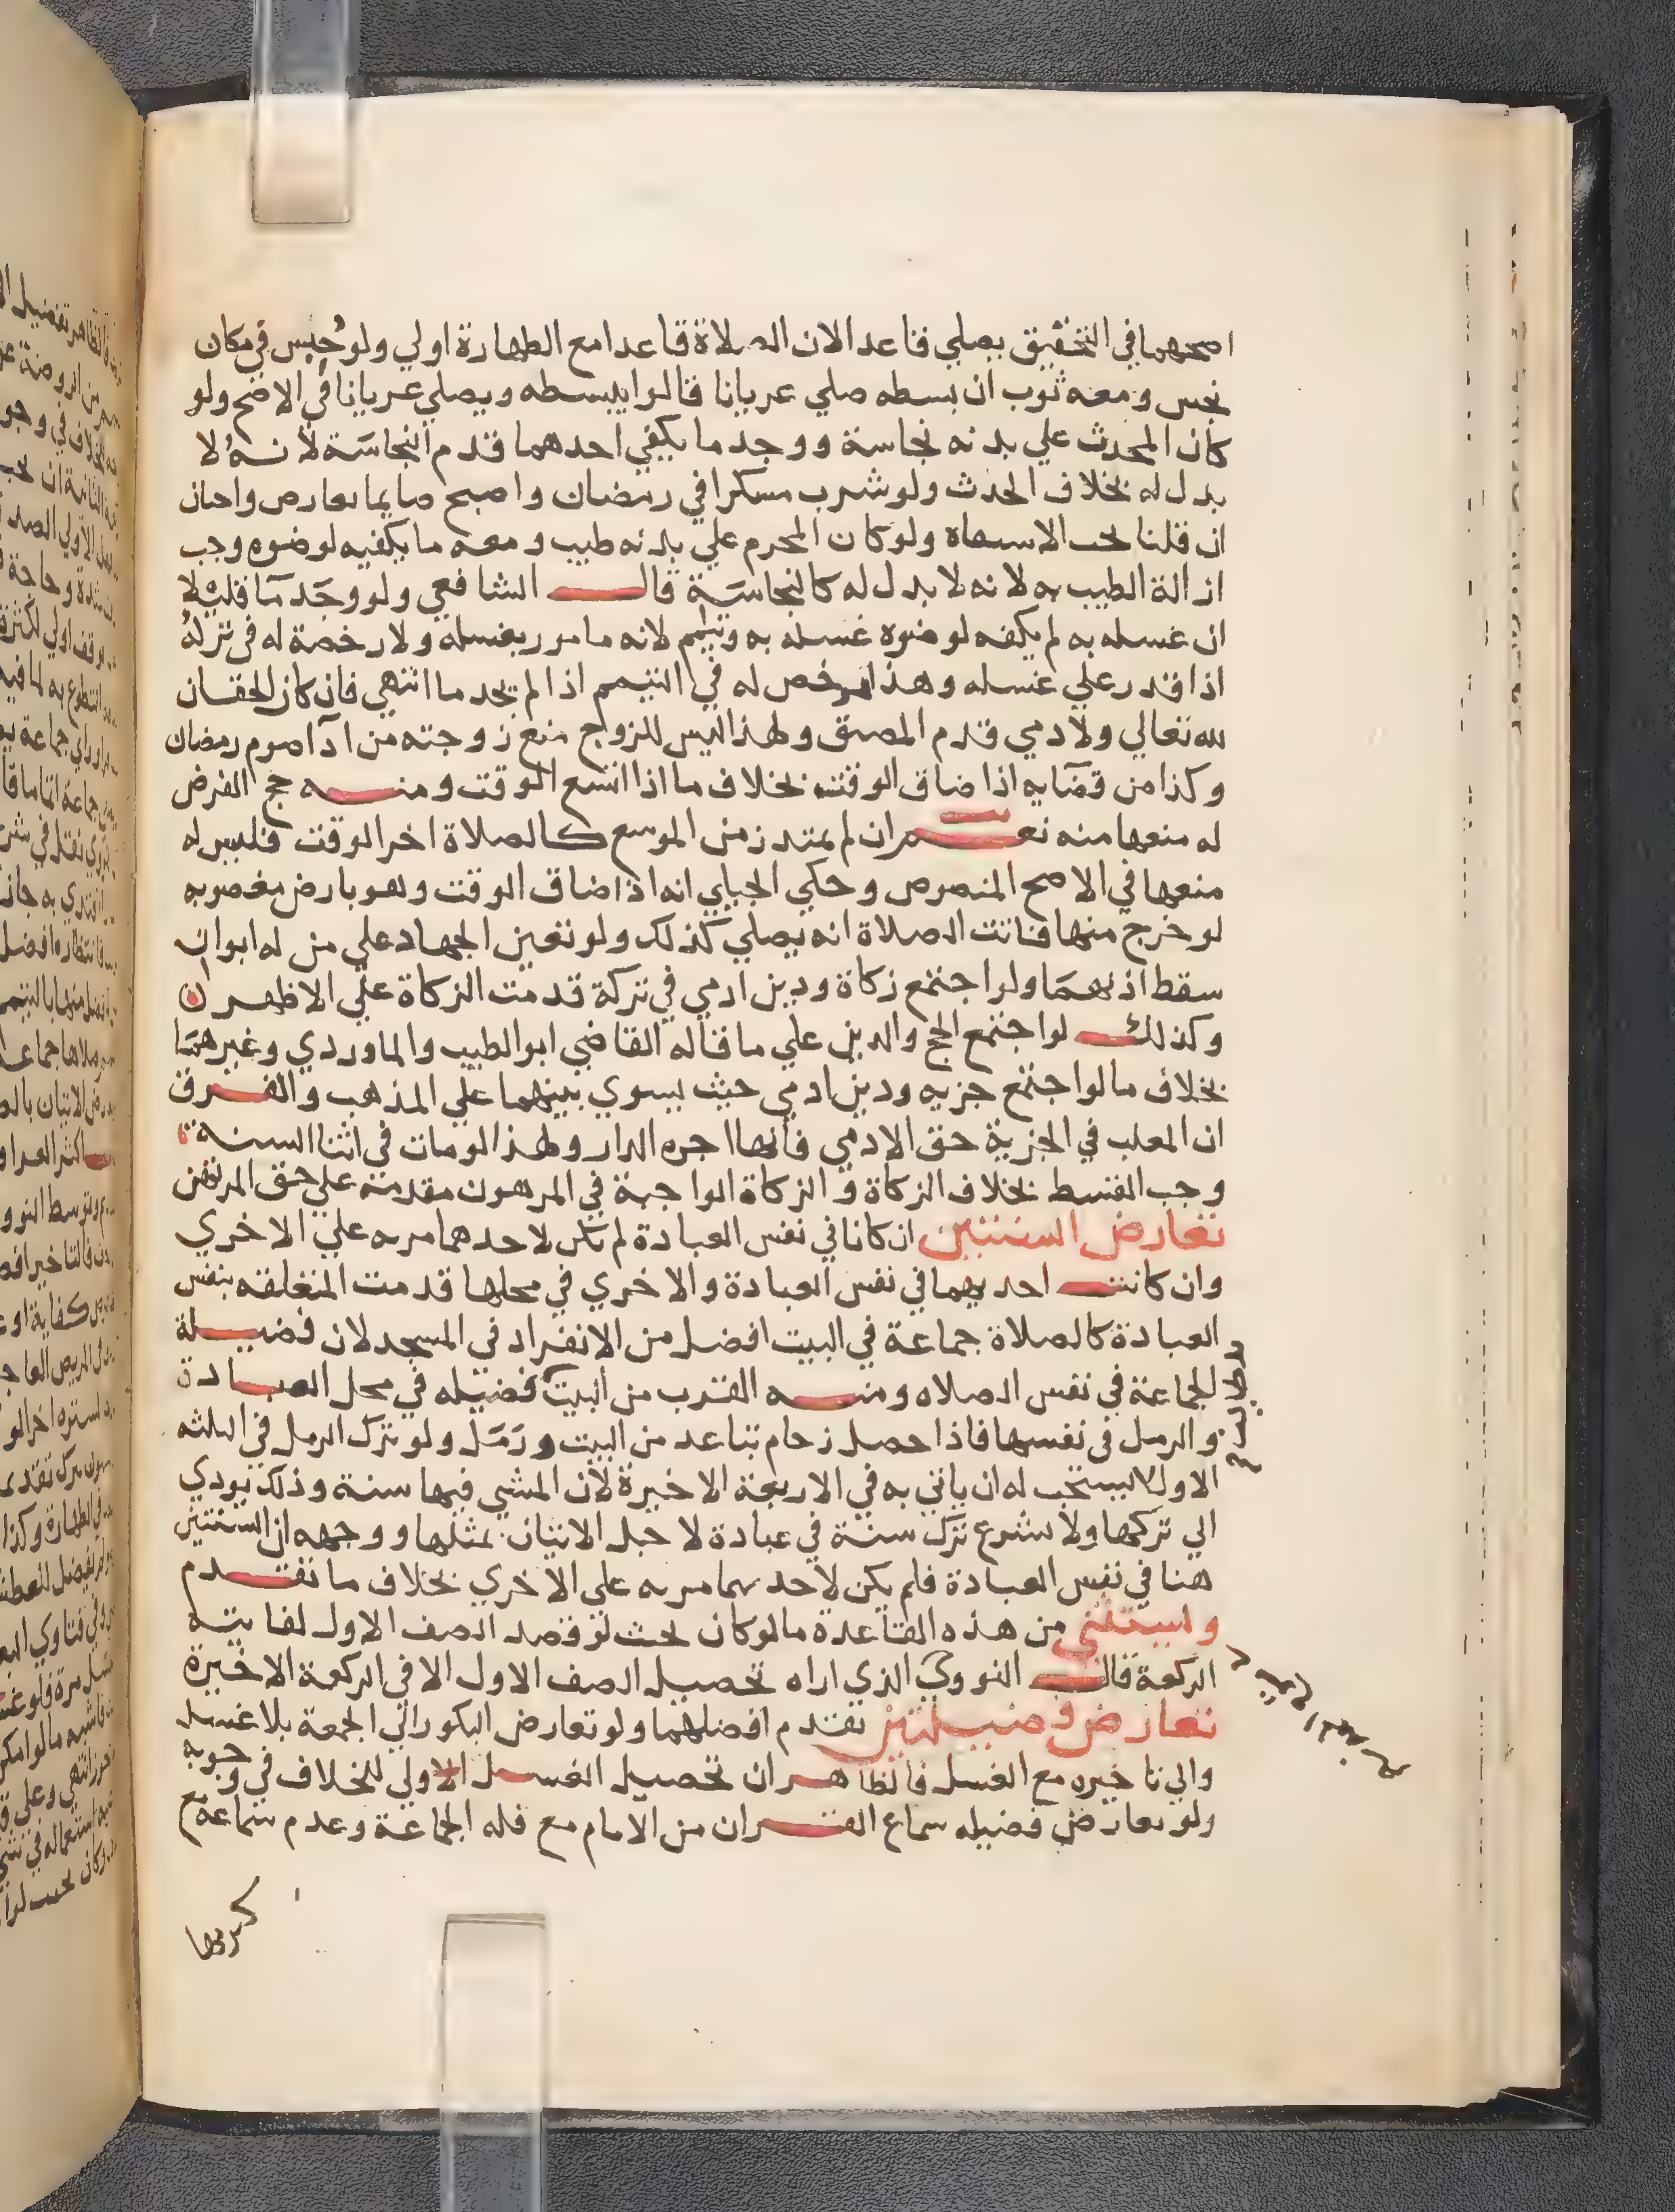 اصحهما في التحقيق يصلي قاعدا لان الصلاة قاعدا مع الطهارة اولي ولو حُبس في مكان
نجس ومعه ثوب ان بسطه صلي عريانا قالوا يبسطه ويصلي عريانا في الاصح ولو
كان المحدث علي بدنه نجاسة ووجد ما يكفي احدهما قدم النجاسَة لأنهُ لا
بدل له بخلاف الحدث ولو شرب مسكرا في رمضان واصبح صايما تعارض واجبان
ان قلنا تجب الاستقاة ولو كان المحرم علي بدنه طيب ومعه ما يكفيه لوضوه وجب
ازالة الطيب به لانه لا بدل له كالنجاسَة قال الشافعي ولو وجَد مآ قليلا
ان غسله به لم يكفه لوضوه غسله به وتيمم لانه مامور بغسله ولا رخصة له في تركه
اذا قدر علي غسله وهذا مرخص له في التيمم اذا لم يجد ما انتهي فان كان الحقان
لله تعالي ولادمي قدم المضيق ولهذا ليس للزوج منع زوجته من ادآ صوم رمضان
وكذا من قضآيه اذا ضاق الوقت بخلاف ما اذا اتسع الوقت ومنه حج الفرض
له منعها منه نعم ان لم يمتد زمن الموسع كالصلاة اخر الوقت فليس له
منعها في الاصح المنصوص وحكي الجيلي انه اذا ضاق الوقت وهو بارض مغصوبه
لو خرج منها فاتت الصلاة انه يصلي كذلك ولو تعين الجهاد علي من له ابوان
سقط اذنهمَا ولو اجتمع زكاة ودين ادمي في تركة قدمت الزكاة علي الاظهر
وكذلك لو اجتمع الحج والدين علي ما قاله القاضي ابو الطيب والماوردي وغيرهمَا
بخلاف ما لو اجتمع جزيه ودين ادمي حيث يسوي بينهما علي المذهب والفرق
ان المغلب في الجزية حق الادمي فانها اجره الدار ولهذا لو مات في اثنا السنة
وجب القسط بخلاف الزكاة و الزكاة الواجبة في المرهون مقدمة علي حق المرتهن
تعارض السنتين ان كانا في نفس العبادة لم يكن لاحدهما مزيه علي الاخري
وان كانت احديهما في نفس العبادة والاخري في محلها قدمت المتعلقه بنفس
العبادة كالصلاة جماعة في البيت افضل من الانفراد في المسجد لان فضيلة
الجماعة في نفس الصلاه ومنه القرب من البيت فضيله في محل العبادة
والرمل في نفسها فاذا حصل زحام تباعد من البيت ورَمَل ولو ترك الرمل في الثلثه
الاول لا يستحب له ان ياتي به في الاربعة الاخيرة لان المشي فيها سنة وذلك يودي
الي تركها ولا يشرع ترك سنة في عبادة لاجل الاتيان بمثلها ووجهه ان السنتين
هنا في نفس العبادة فلم يكن لاحديهما مزيه علي الاخري بخلاف ما تقدم
ويستثني من هذه القاعدة ما لو كان بحيث لو قصد الصف الاول لفاتته
الركعة قال النووي الذي اراه تحصيل الصف الاول الا في الركعة الاخيرة
تعارض فضيلتين تقدم افضلهما ولو تعارض البكور الي الجمعة بلا غسل
والي تاخيره مع الغسل فالظاهر ان تحصيل الغسل الاولي للخلاف في وجوبه
ولو تعارض فضيله سماع القران من الامام مع قله الجماعة وعدم سماعه مع
كثرتها